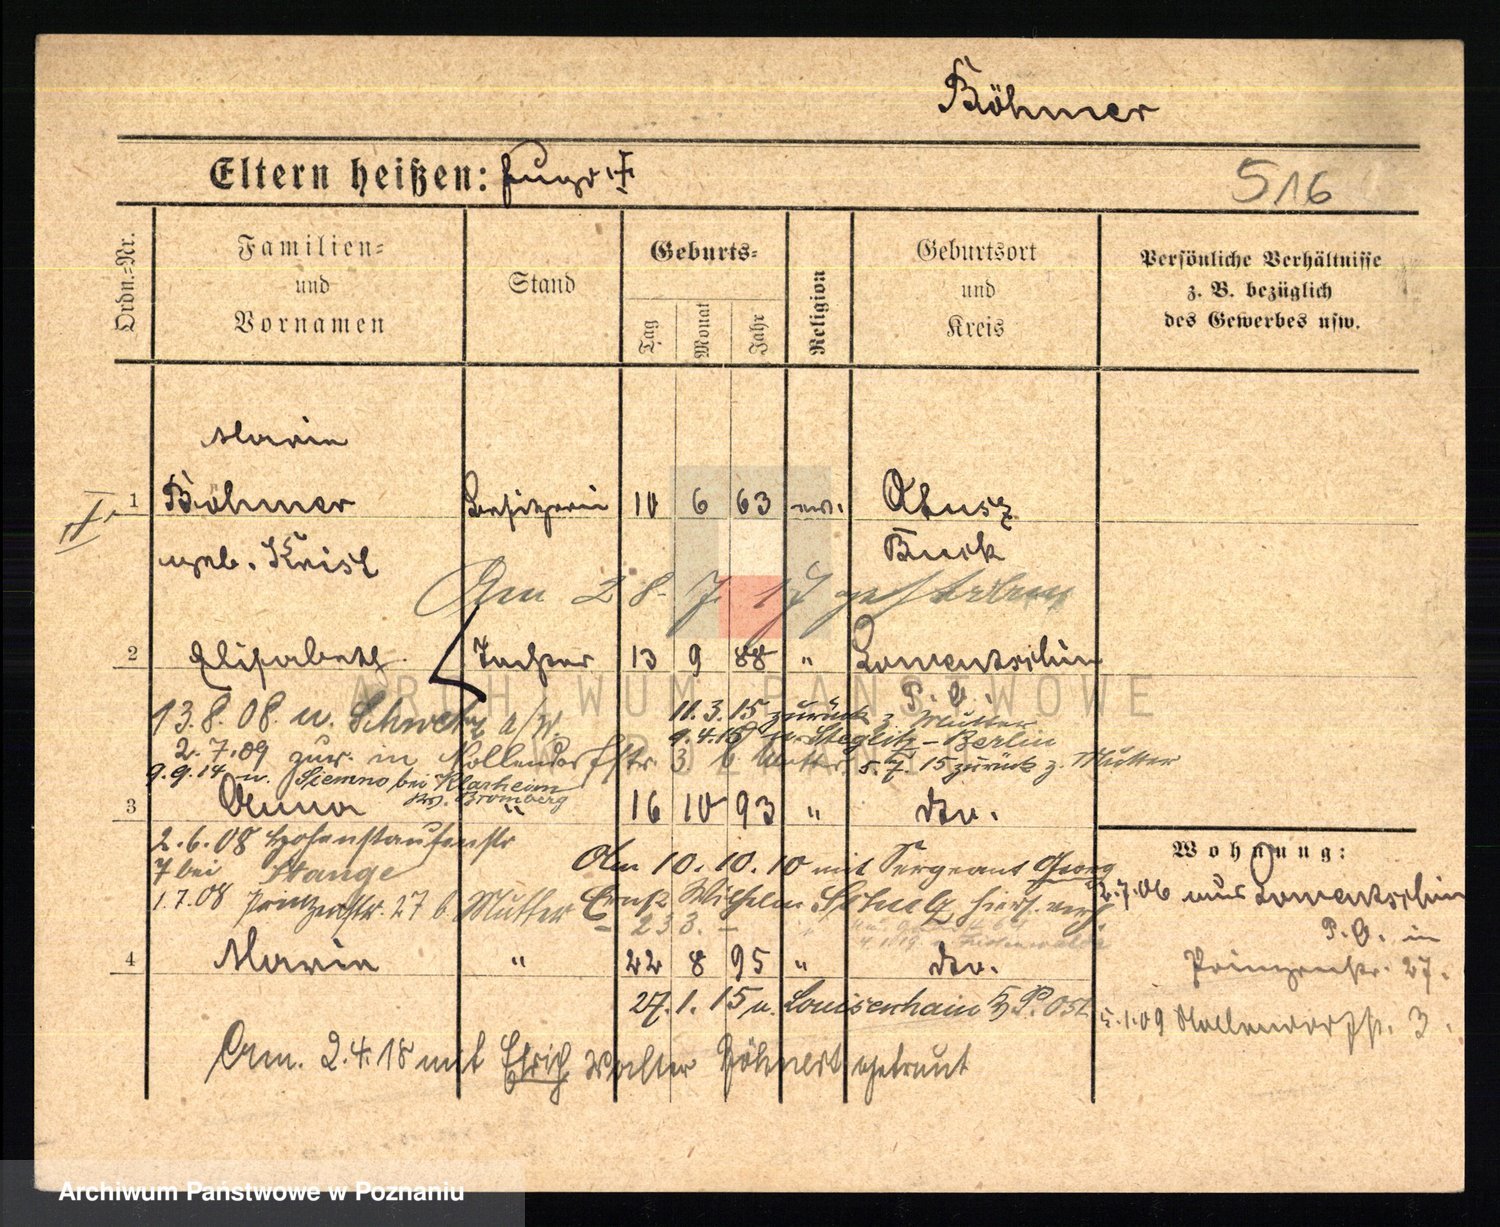 Böhmer
Eltern heißen:
516
Ordn.=Nr.
Familien=
und
Vornamen
Stand
Geburts=
Tag
Monat
Jahr
Religion
Geburtsort
und
Kreis
Persönliche Verhältnisse
z. B. bezüglich
des Gewerbes usw.
Maria
1 Böhmer Besitzerin 10 6 63 Otusz
geb. Buck
Am 28. 7. 17 gestorben
2 Elisabeth Tochter 13 9 88 " Lawentschin
P. O.
13.8.08 n. Schwetz a/W. 11.3.15 zurück z. Mutter
9.4.15 n. Steglitz-Berlin
2.7.09 zur. in Nollendorfstr. 3 b Mutter 5.7.15 zurück z. Mutter
9.9.14 n. Siemno bei Klarheim
Krs. Bromberg
3 Anna " 16 10 93 " do.
2.6.08 Hohenstaufenstr
7 bei Stange
Am 10.10.10 mit Sergeant Georg
1.7.08 Prinzenstr. 27 b. Mutter Ernst Wilhelm hier verh.
233.
4 Maria " 22 8 95 " do.
27.1.15 n. Louisenhain Kr. P. Ost
Am. 2.4.18 mit Erich Walter getraut
Wohnung:
2.7.06 aus Lawentschin
P. O. in
Prinzenstr. 27.
5.1.09 Nollendorfstr. 3.
ARCHIWUM PAŃSTWOWE
W POZNANIU
Archiwum Państwowe w Poznaniu